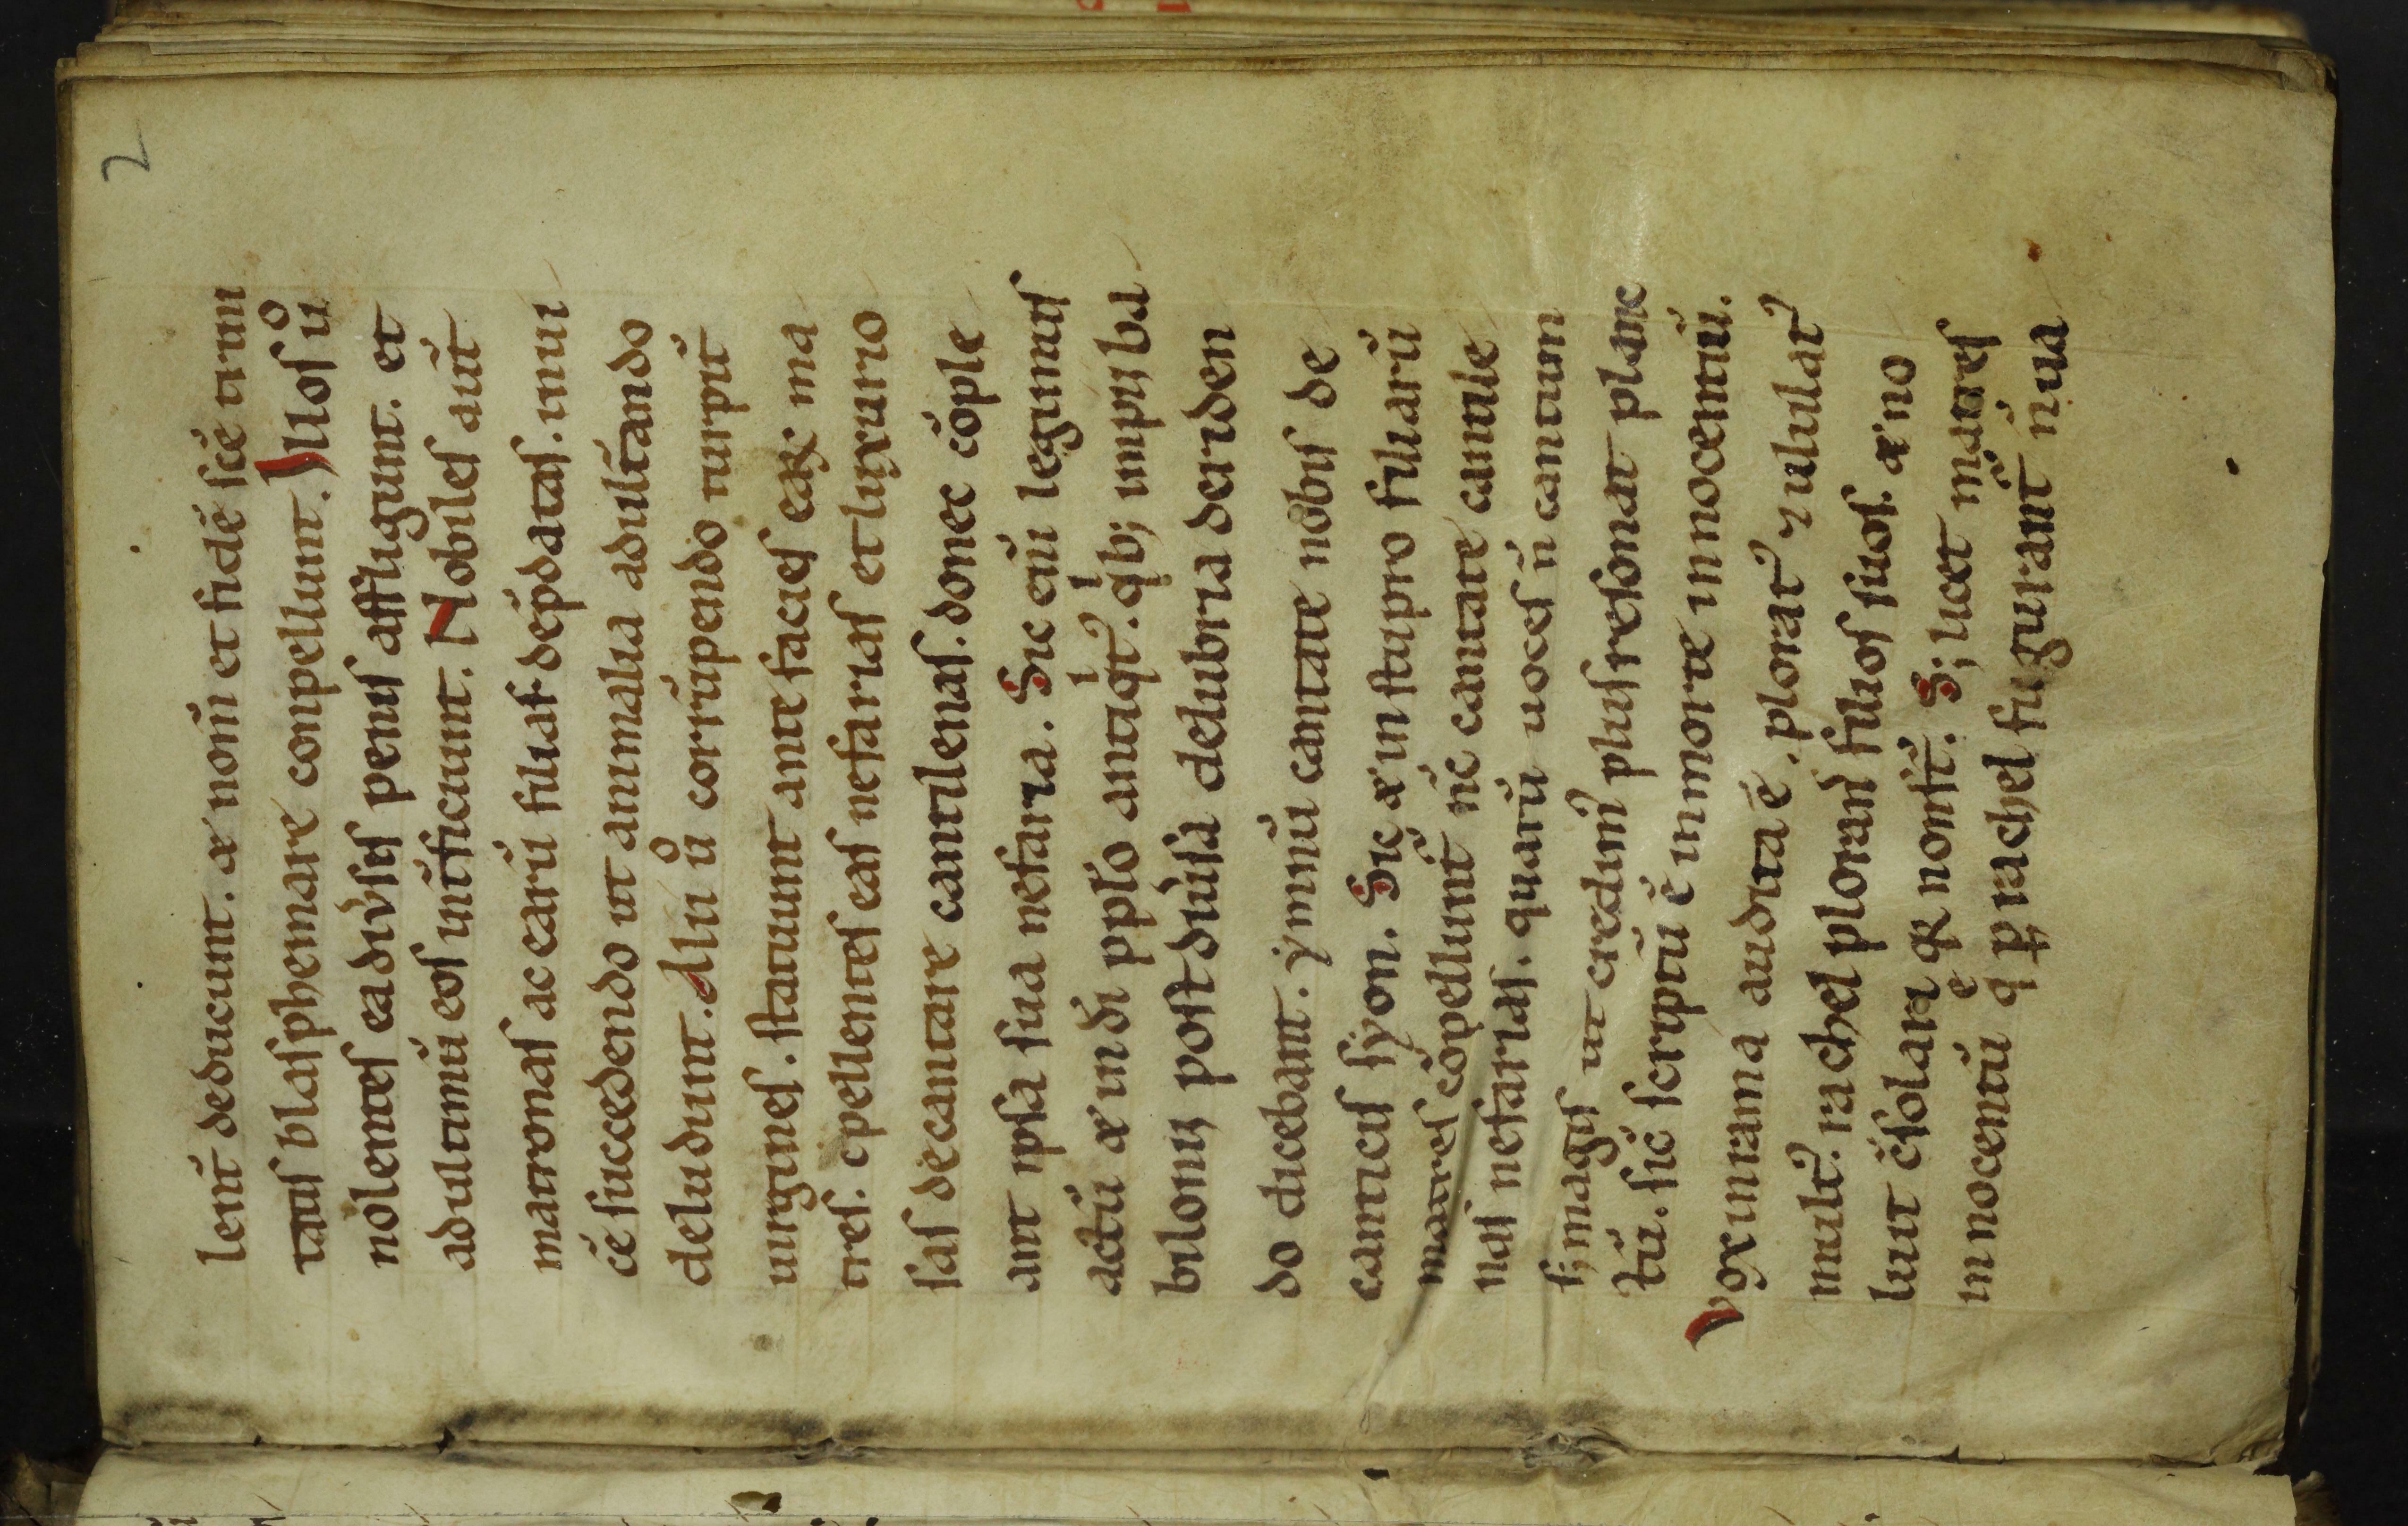 2
lenť deducunt. & nom̄ et fidē scē trini
tatis blasphemare conpellunt. Illos u̇º
nolentes ea div̾sis penis affligunt. et
ad ultimū eos int̾ficiunt. Nobiles aut̄
matronas ac earū filias dep̄datas. invi
cē succedendo ut animalia adult̾ando
deludunt. Alii ůº corrūpendo turpit̾
virgines. statuunt ante facies eaꝝ ma
tres. cpellentes eas nefarias et luxurio
sas decantare cantilenas. donec cōple
ant ipsa sua nefaria. Sic eni̅ legimus
actū & in di̅ pplo antiqͥtꝰ. qͥbꝫ impii ba
bilonii post div̾sa delubria deriden
do dicebant. ymnū cantate nobis de
canticis syon. Sic & in stupro filiarū
matres cōpellunt̾ nc̄ cantare cantile
nas nefarias. quarū voces n̄ cantum
sꝫ magis ut credimꝰ plus resonat planc
tū. sic̄ scriptū ē in morte innocentiū.
Vox in rama audita ē. ploratꝰ ⁊ ululatꝰ
multꝰ. rachel plorans filios suos. & no
luit c̄solari qꝛ non sť. Sꝫ licet matres
innocentū qᵉ p̱ rachel figurant̾ n̄ va